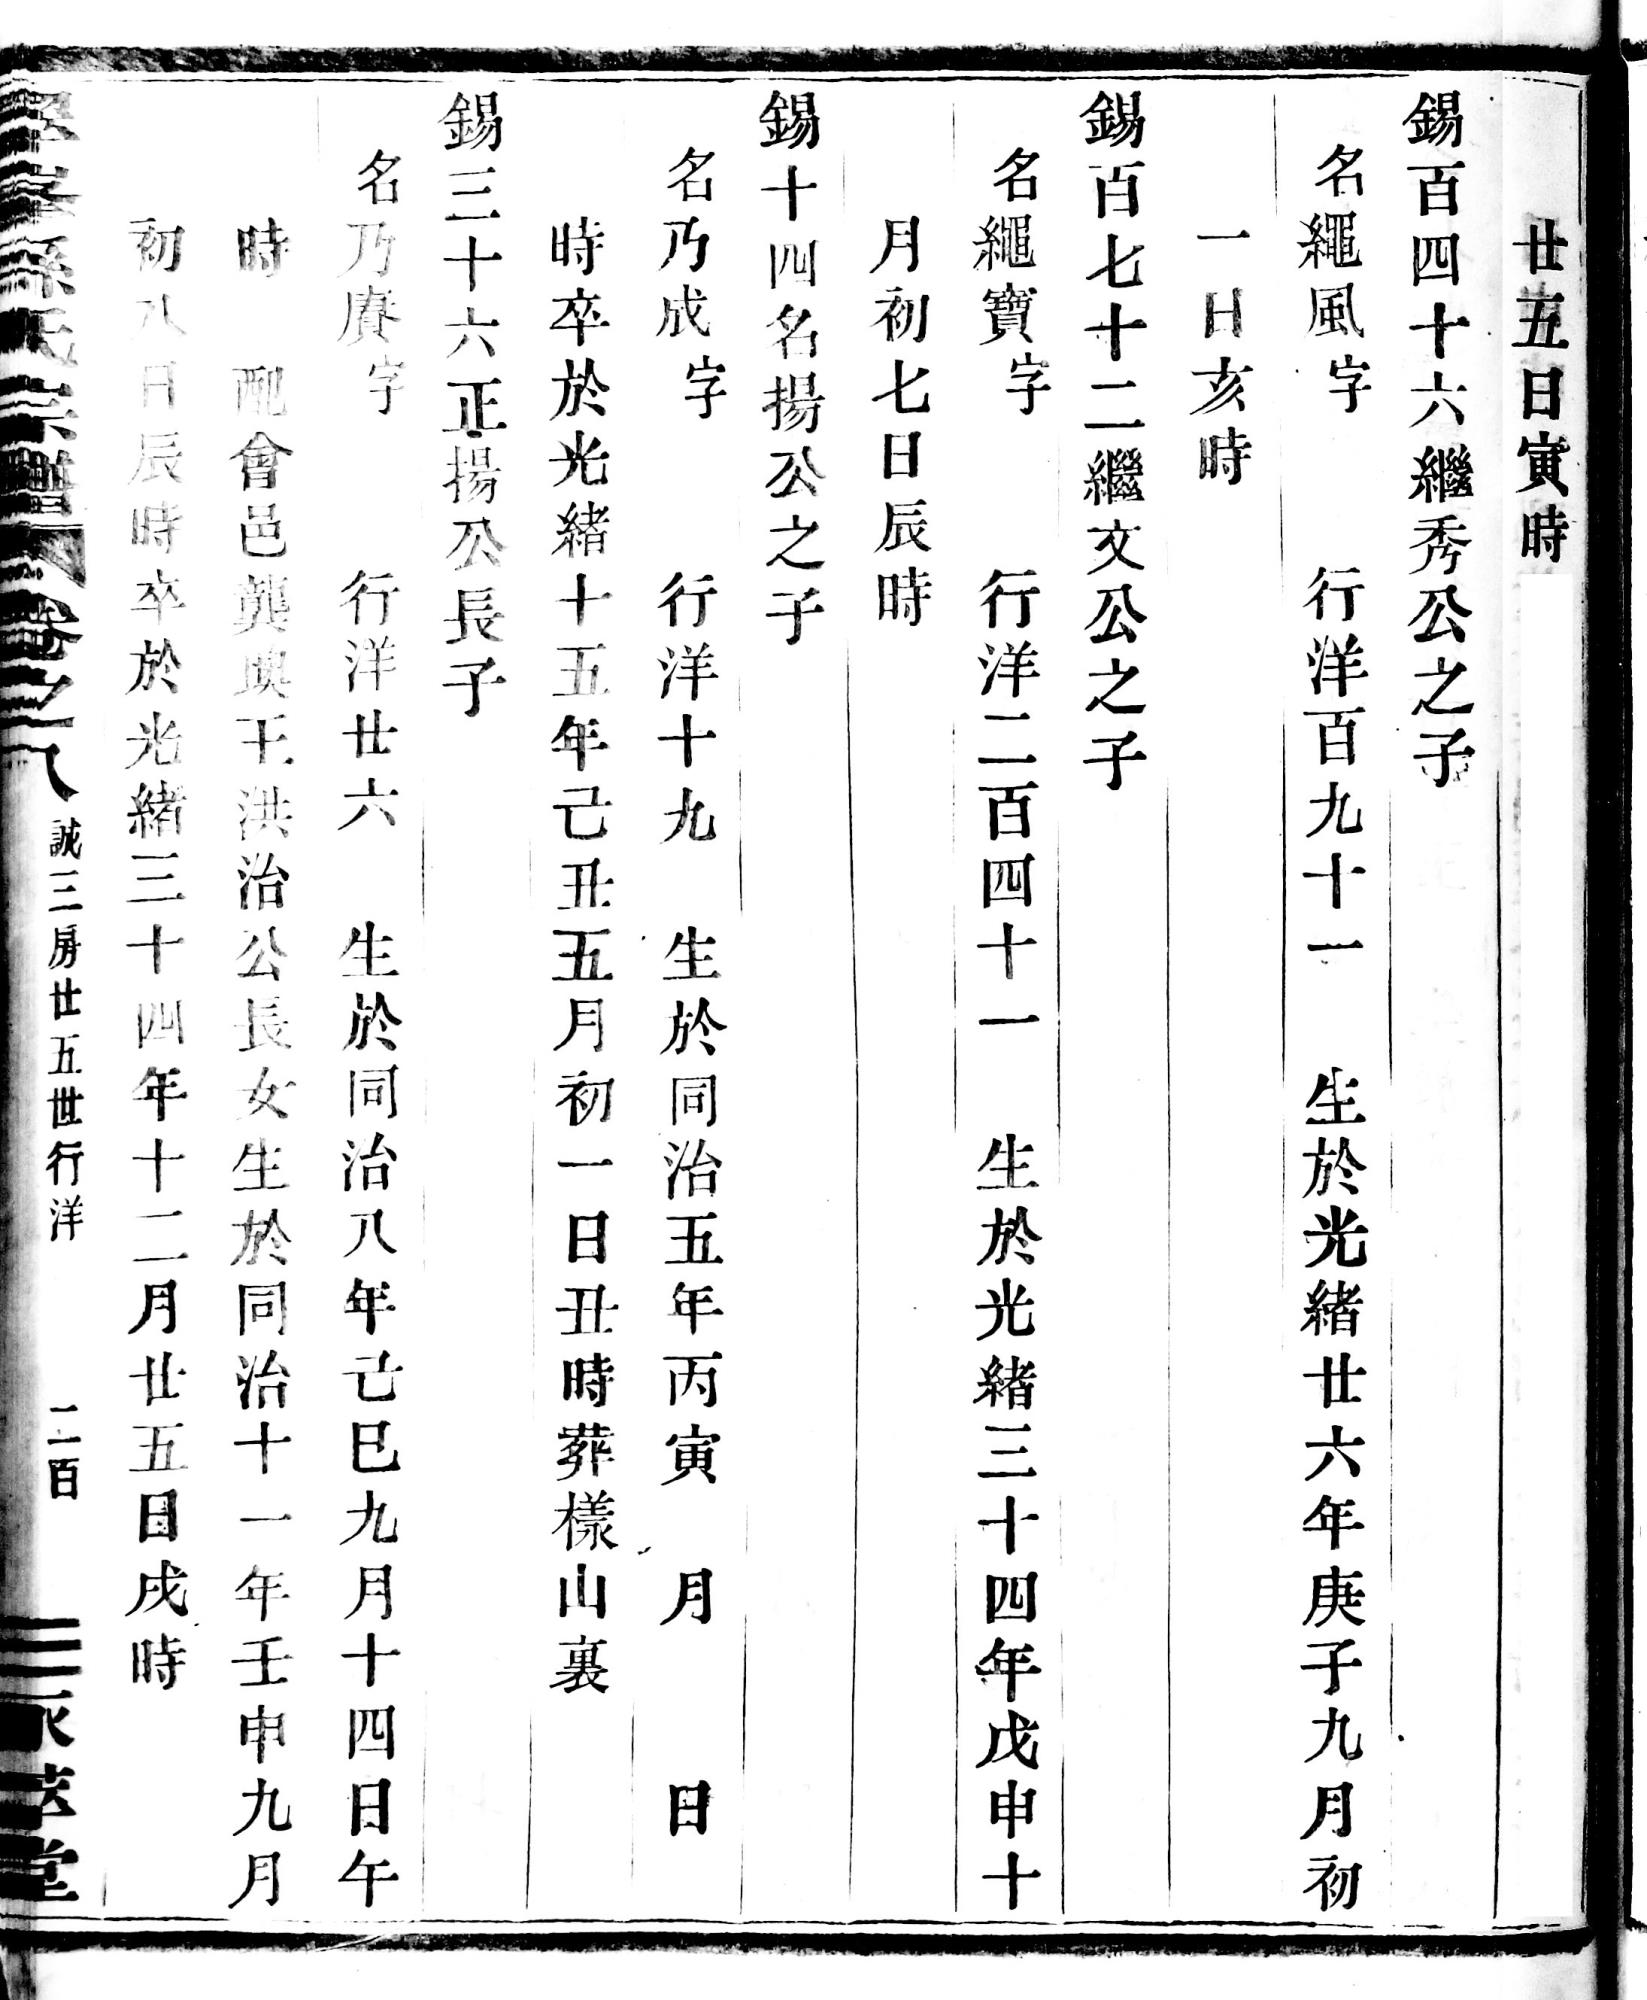 廿五日寅時
錫百四十六繼秀公之子
名繩風字 行洋百九十一 生於光緒廿六年庚子九月初
一日亥時
錫百七十二繼文公之子
名繩寶字 行洋二百四十一 生於光緒三十四年戊申十
月初七日辰時
錫十四名揚公之子
名乃成字 行洋十九 生於同治五年丙寅 月 日
時卒於光緒十五年己丑五月初一日丑時葬樣山裏
錫三十六正揚公長子
名乃賡字 行洋廿六 生於同治八年己巳九月十四日午
時 配會邑龔墺王洪治公長女生於同治十一年壬申九月
初八日辰時卒於光緒三十四年十二月廿五日戌時
孫氏宗譜 卷之八 誠三房廿五世行洋 二百 堂